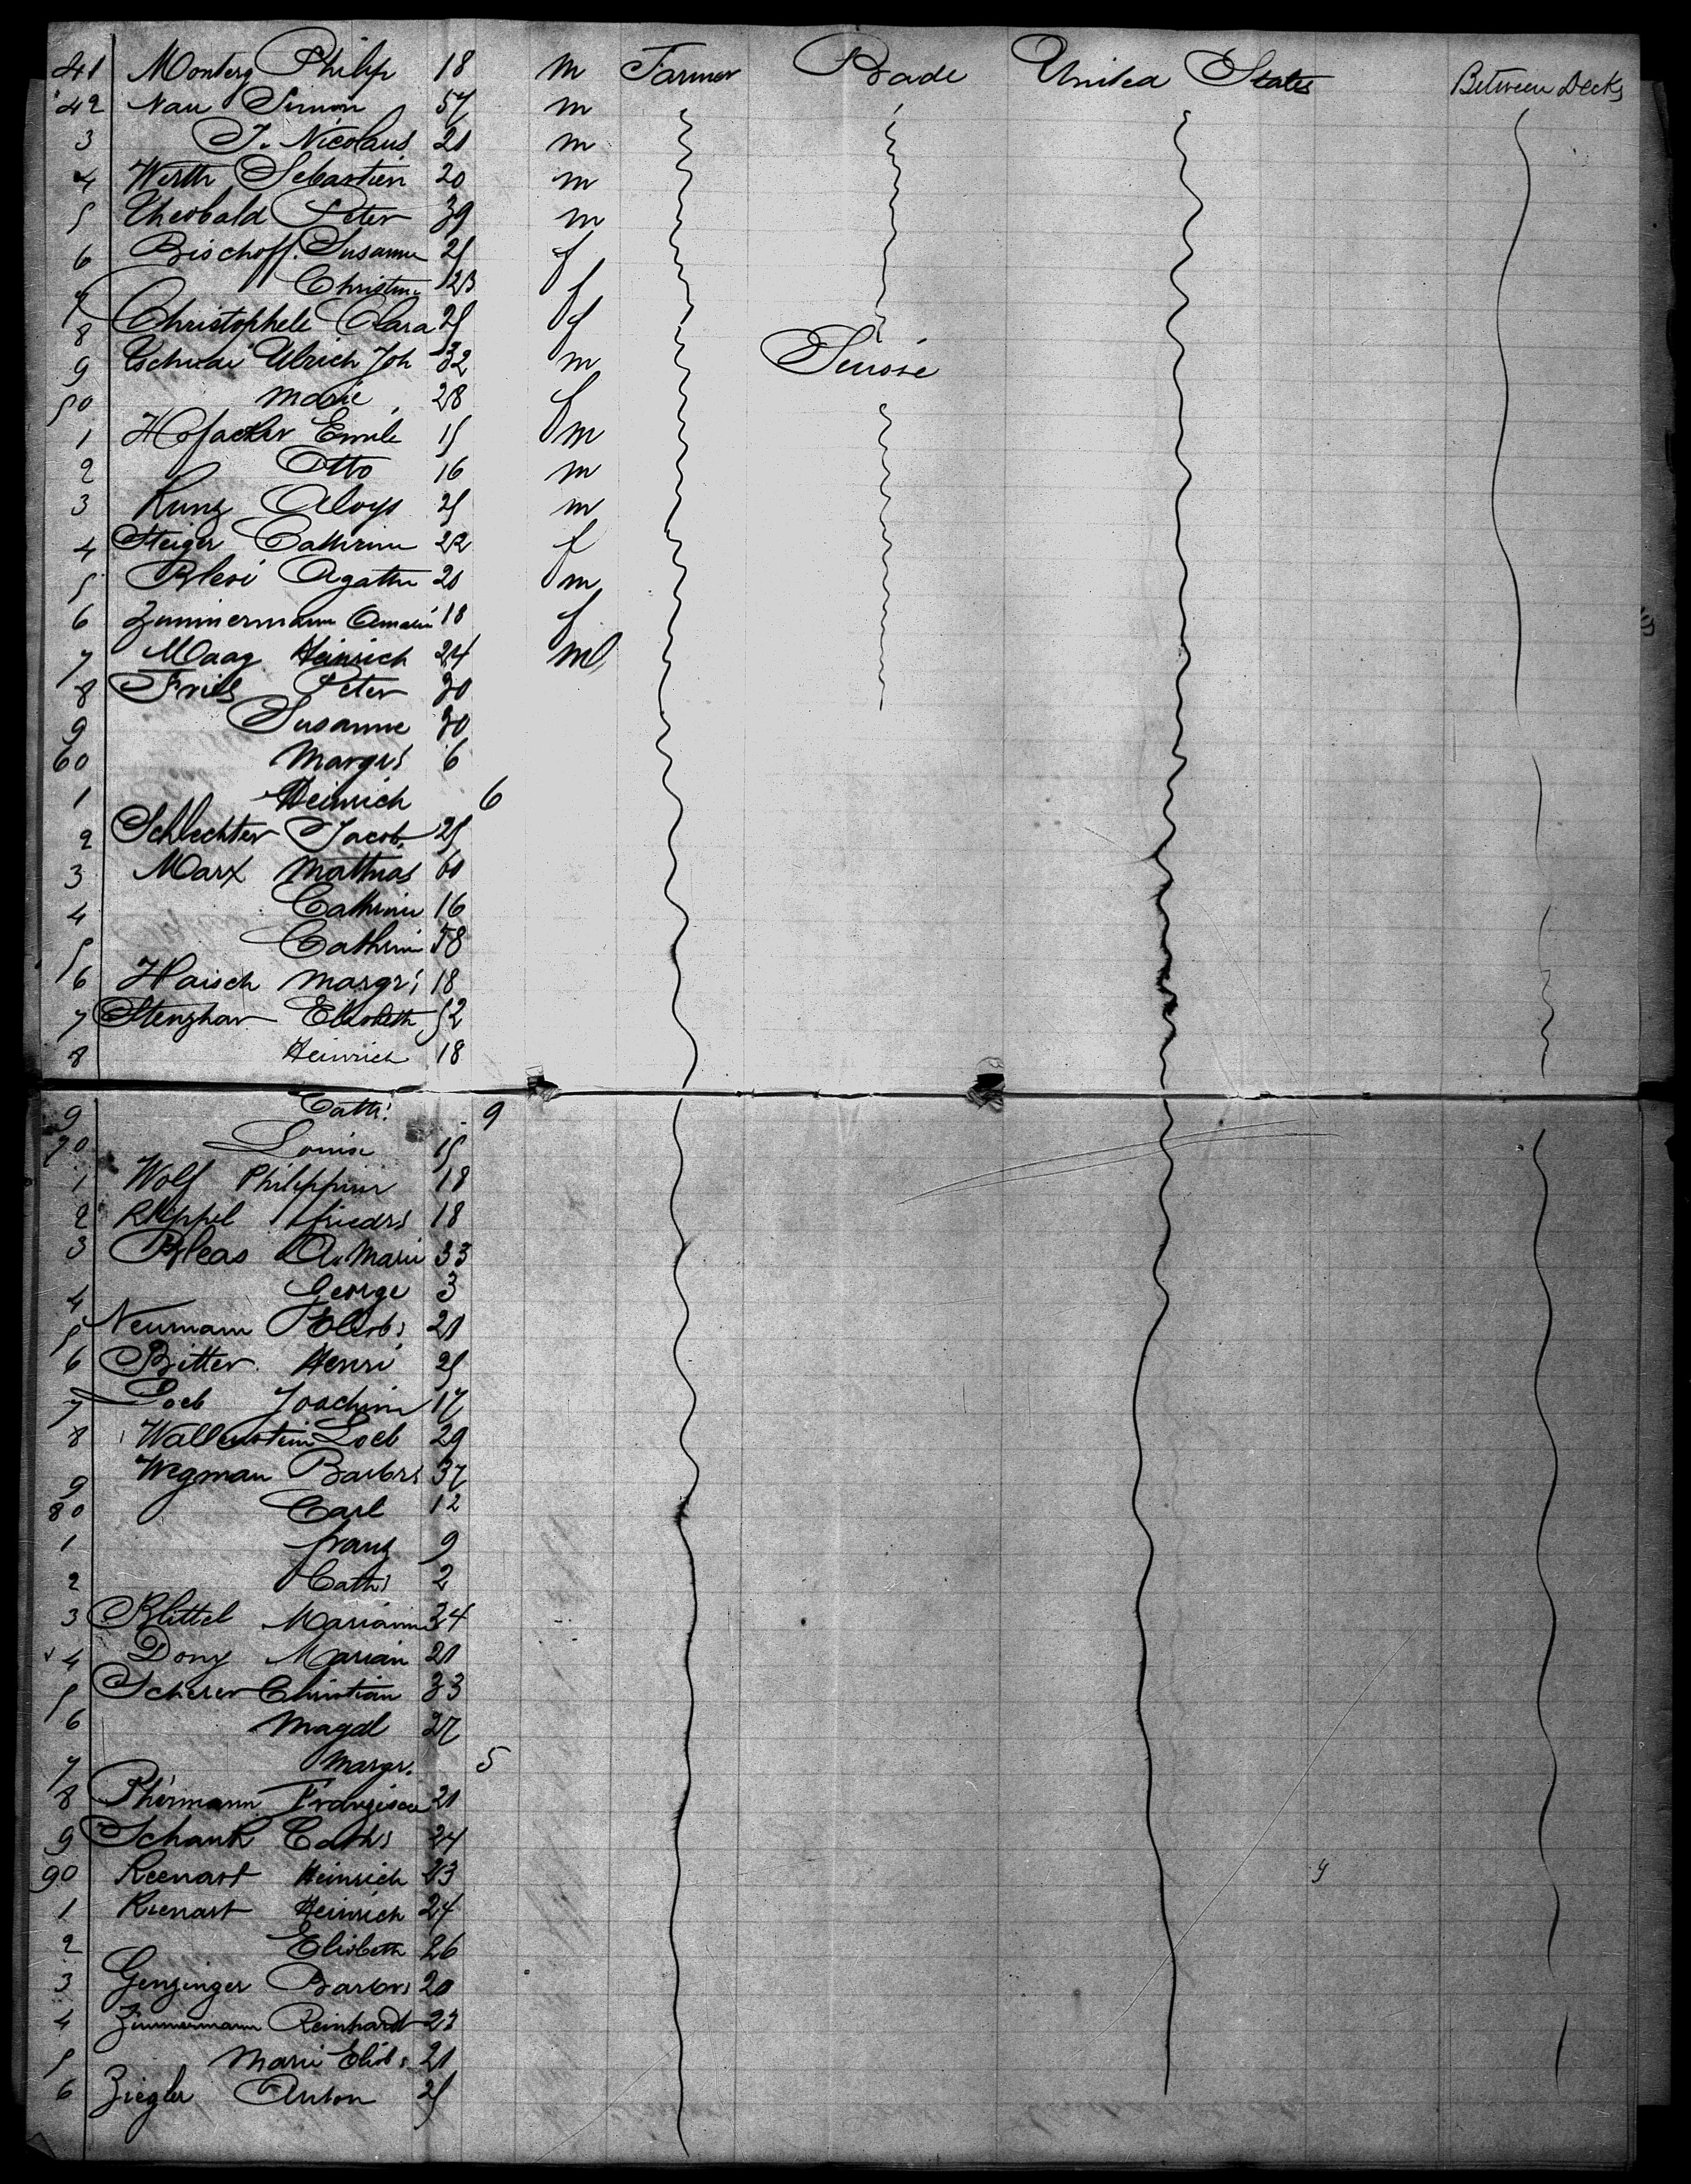 41 Montery Philip 18 m Farmer Bade United States Between Decks
42 Nau Simon 57 m
3 J. Nicolaus 21 m
4 Werth Sebastien 20 m
5 Theobald Peter 39 m
6 Bischoff Susanne 25 f
7 Christin 23 f
8 Christophele Clara 25 f
9 Ulrich Joh 32 m Suisse
50 Marie 28 f
1 Hofacker Emile 15 m
2 Otto 16 m
3 Kunz Aloys 25 m
4 Steiger Cathrine 22 f
5 Blesi Agathe 20 m
6 Zimmermann Amalie 18 f
7 Maag Heinrich 24 m
8 Fries Peter 30
9 Susanne 30
60 Margrs 6
1 Heinrich 6
2 Schlechter Jacob 25
3 Marx Mathias 60
4 Cathrine 16
5 Cathrine 58
6 Haisch Margr: 18
7 Stenzhar Elisabeth 52
8 Heinrich 18
9 Cath: 9
70 Louise 15
1 Wolf Philippine 18
2 Friedrs 18
3 Bleas A. Marie 33
4 George 3
5 Neumann Elisbs 21
6 Bitter Henri 25
7 Loeb Joachim 17
8 Wallenstein Loeb 29
9 Wegman Barbrs 37
80 Carl 12
1 Franz 9
2 Caths 2
3 Blittel Marianne 34
4 Dony Marian 21
5 Scherer Christian 33
6 Magdl 27
7 Margr. 5
8 Phormann Franzisca 21
9 Schank Caths 24
90 Reenart Heinrich 23
1 Rienart Heinrich 24
2 Elisbeth 26
3 Genzinger Barbrs 20
4 Zimmermann Reinhardt 23
5 Marie Elisb: 21
6 Ziegler Anton 25